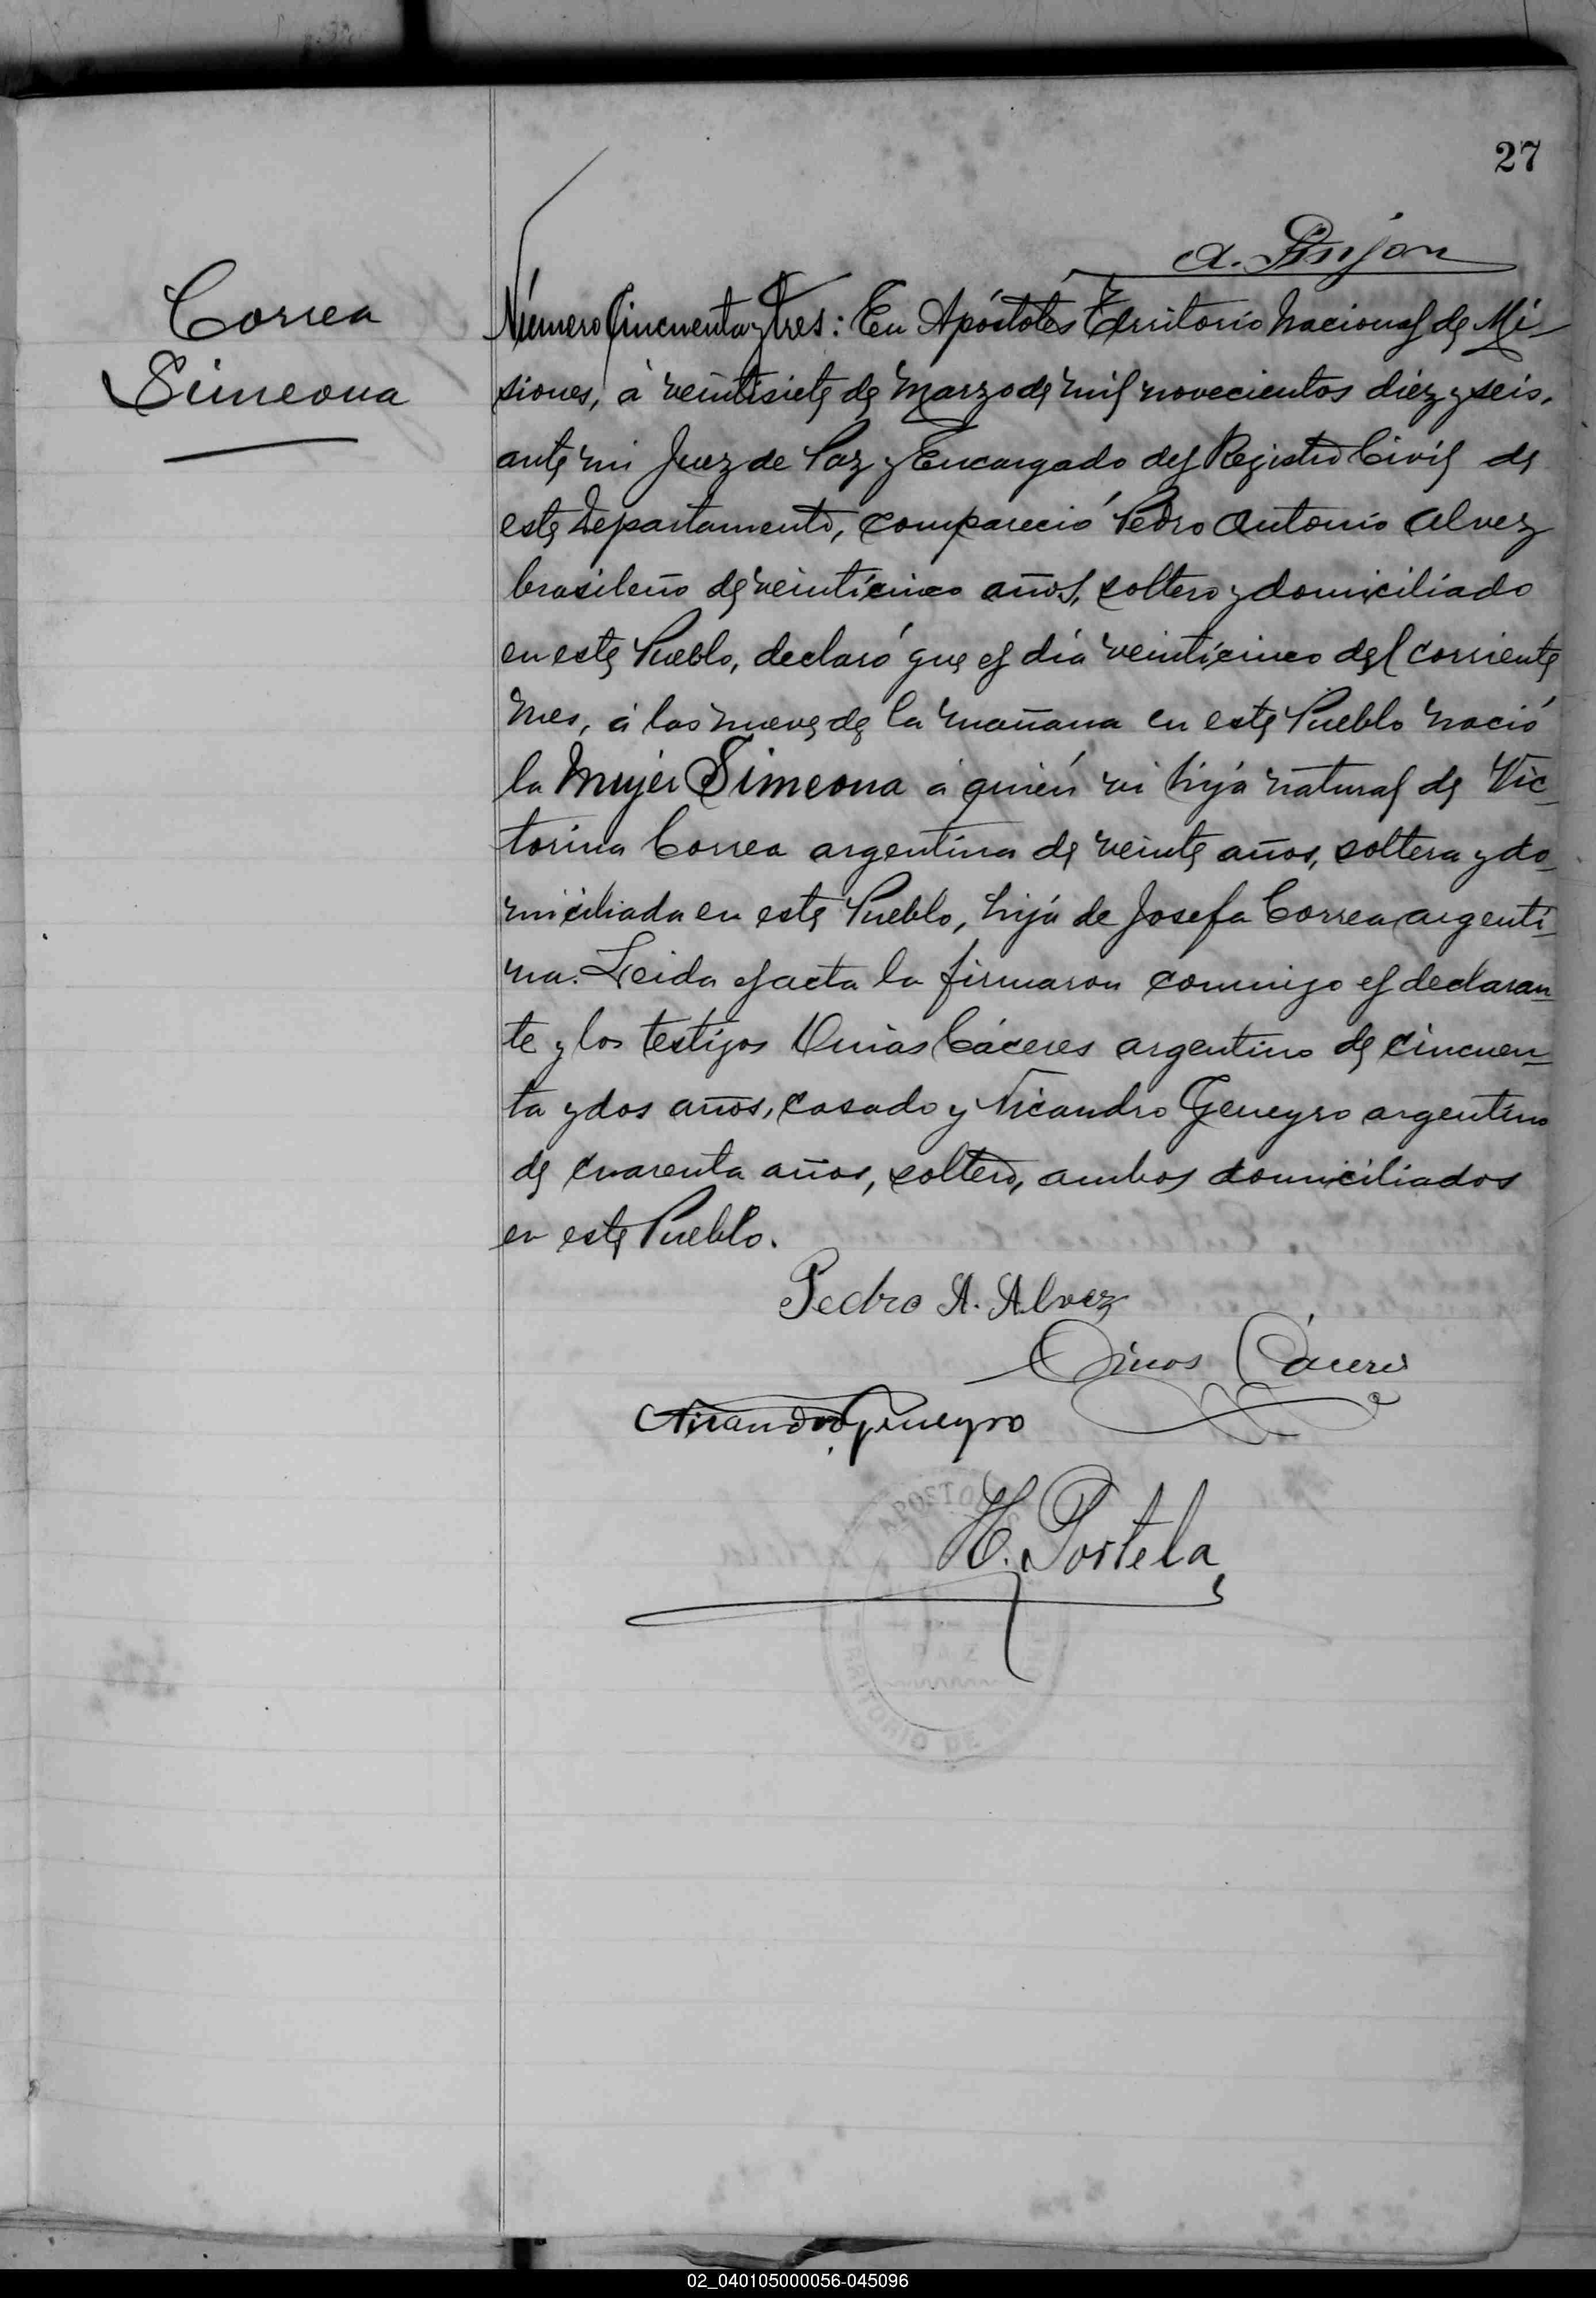 27
A. Pinjon
Correa
Simeona
Número Cincuenta y tres: En Apóstoles Territorio Nacional de Mi-
siones, á veintisiete de Marzo de mil novecientos diez y seis,
ante mi Juez de Paz y Encargado del Registro Civil de
este Departamento, compareció Pedro Antonio Alvez
brasileño de veinticinco años, soltero y domiciliado
en este Pueblo, declaró que el día veinticinco del corriente
mes, á las nueve de la mañana en este Pueblo nació
la Mujer Simeona á quién vi hija natural de Vic-
torina Correa argentina de veinte años, soltera y do-
miciliada en este Pueblo, hija de Josefa Correa argenti-
na. Leida el acta la firmaron conmigo el declaran-
te y los testigos Cáceres argentino de cincuen-
ta y dos años, casado y Nicandro Geneyro argentino
de cuarenta años, soltero, ambos domiciliados
en este Pueblo.
Pedro A. Alvez
Cáceres
Nicandro Geneyro
H. Portela
02_040105000056-045096